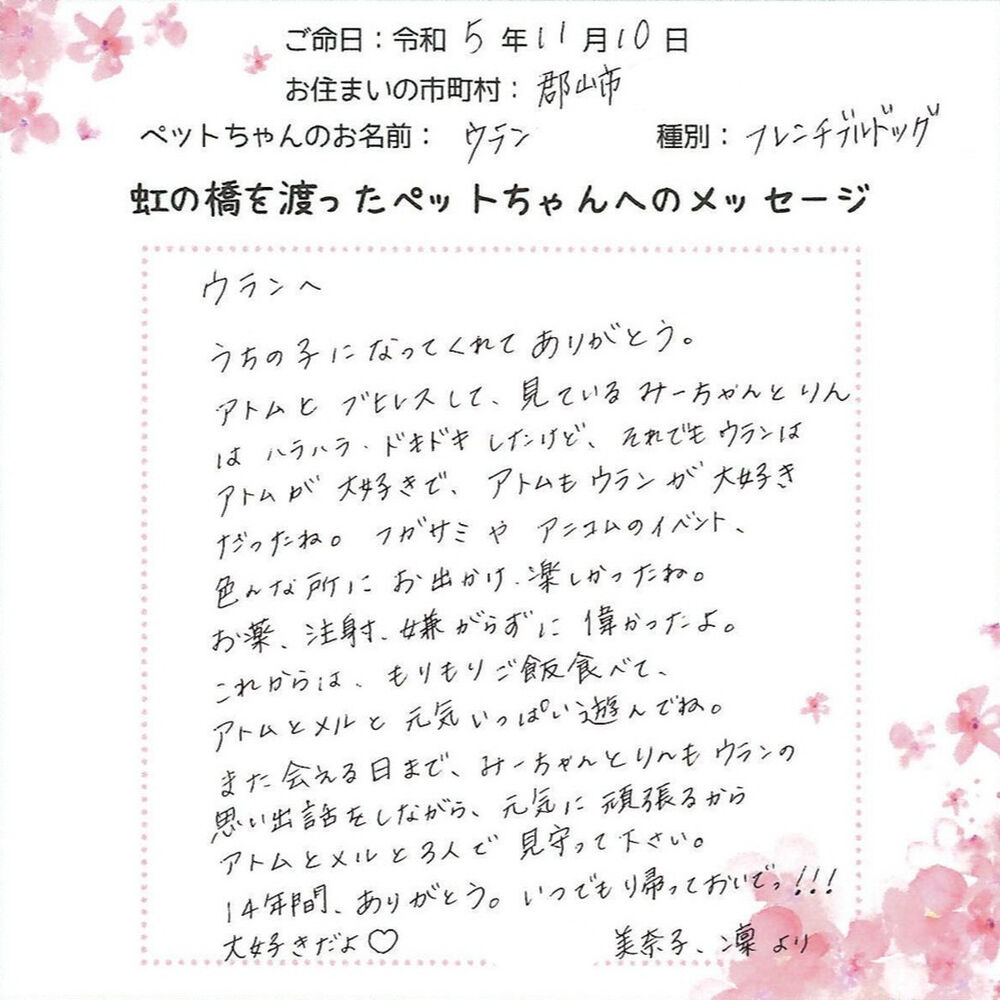 ご命日：令和 5 年 11 月 10 日
お住まいの市町村： 郡山市
ペットちゃんのお名前： ウラン 種別： フレンチブルドッグ
虹の橋を渡ったペットちゃんへのメッセージ
ウランへ
うちの子になってくれてありがとう。
アトムと ブヒレスして、見ているみーちゃんとりん
は ハラハラ・ドキドキしたけど、それでもウランは
アトムが大好きで、アトムもウランが大好き
だったね。フガサミや アニコムのイベント、
色んな所に お出かけ、楽しかったね。
お薬、注射、嫌がらずに偉かったよ。
これからは、もりもりご飯食べて、
アトムとメルと元気いっぱい遊んでね。
また会える日まで、みーちゃんとりんもウランの
思い出話をしながら、元気に頑張るから
アトムとメルと3人で見守って下さい。
14年間、ありがとう。いつでもり帰っておいでっ!!!
大好きだよ♡ 美奈子、凜より